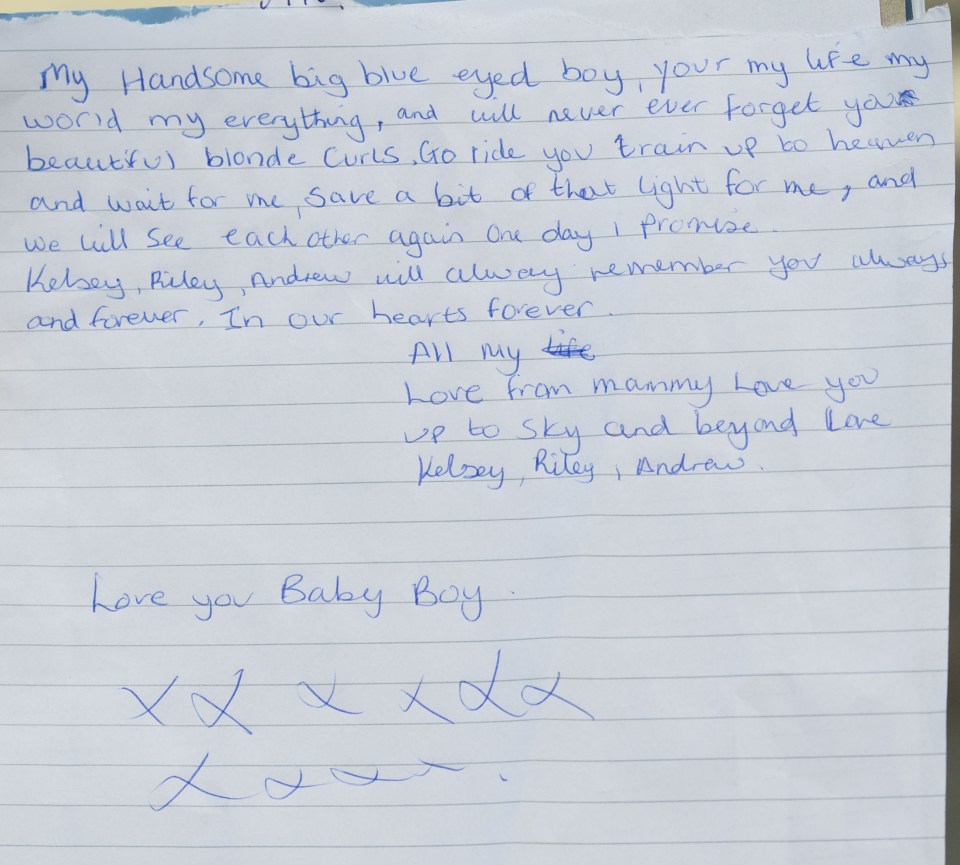 My Handsome big blue eyed boy, your my life my
world my everything, and will never ever forget your
beautiful blonde curls. Go ride you train up to heaven
and wait for me, Save a bit of that light for me, and
we will see each other again one day i promise.
Kelsey, Riley, Andrew will alway remember you always
and forever. In our hearts forever.
All my life
Love from mammy Love you
up to sky and beyond Love
Kelsey, Riley, Andrew.
Love you Baby Boy.
x x x x x x
x x x x .